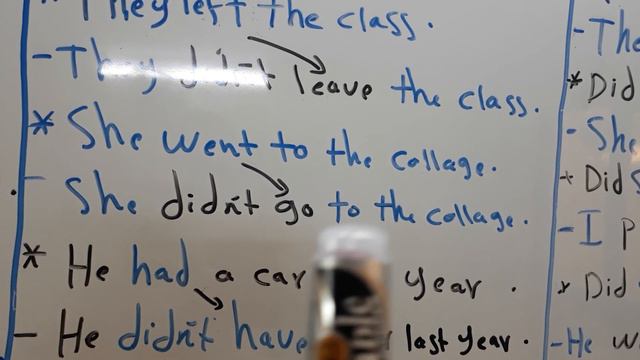 * They left the class.
- They didn't leave the class.
* She went to the collage.
- She didn't go to the collage.
* He had a car year.
- He didn't have last year.
- The
* Did
- She
+ Did S
- I p
* Did
- He w